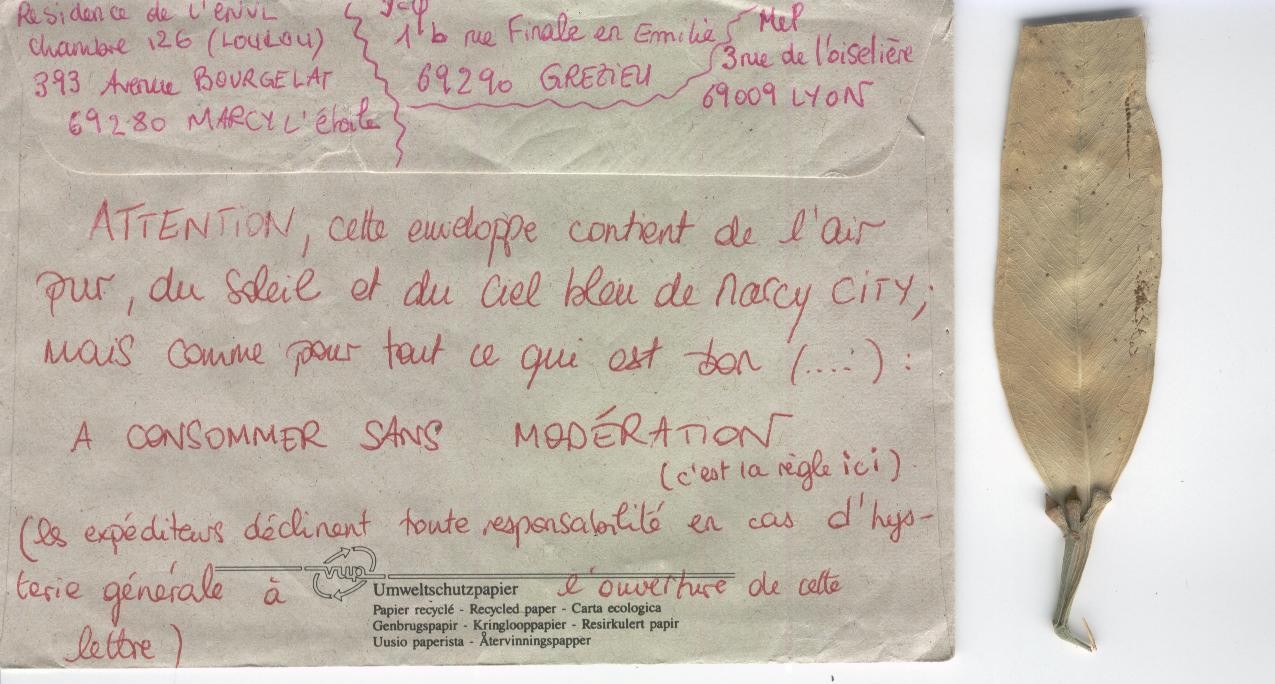 Résidence de L'ENVL
chambre 126 (LOULOU)
393 Avenue BOURGELAT
69280 MARCY L'étoile
y=φ
1 b rue Finale en Emilie
69290 GREZIEU
MeP
3 rue de l'oiselière
69009 LYON
ATTENTION, cette enveloppe contient de l'air
pur, du soleil et du ciel bleu de Marcy CITY,
mais comme pour tout ce qui est bon (....) :
A CONSOMMER SANS MODÉRATION
(c'est la règle ici)
(les expéditeurs déclinent toute responsabilité en cas d'hys-
terie générale à l'ouverture de cette
lettre)
vup
Umweltschutzpapier
Papier recyclé - Recycled paper - Carta ecologica
Genbrugspapir - Kringlooppapier - Resirkulert papir
Uusio paperista - Återvinningspapper